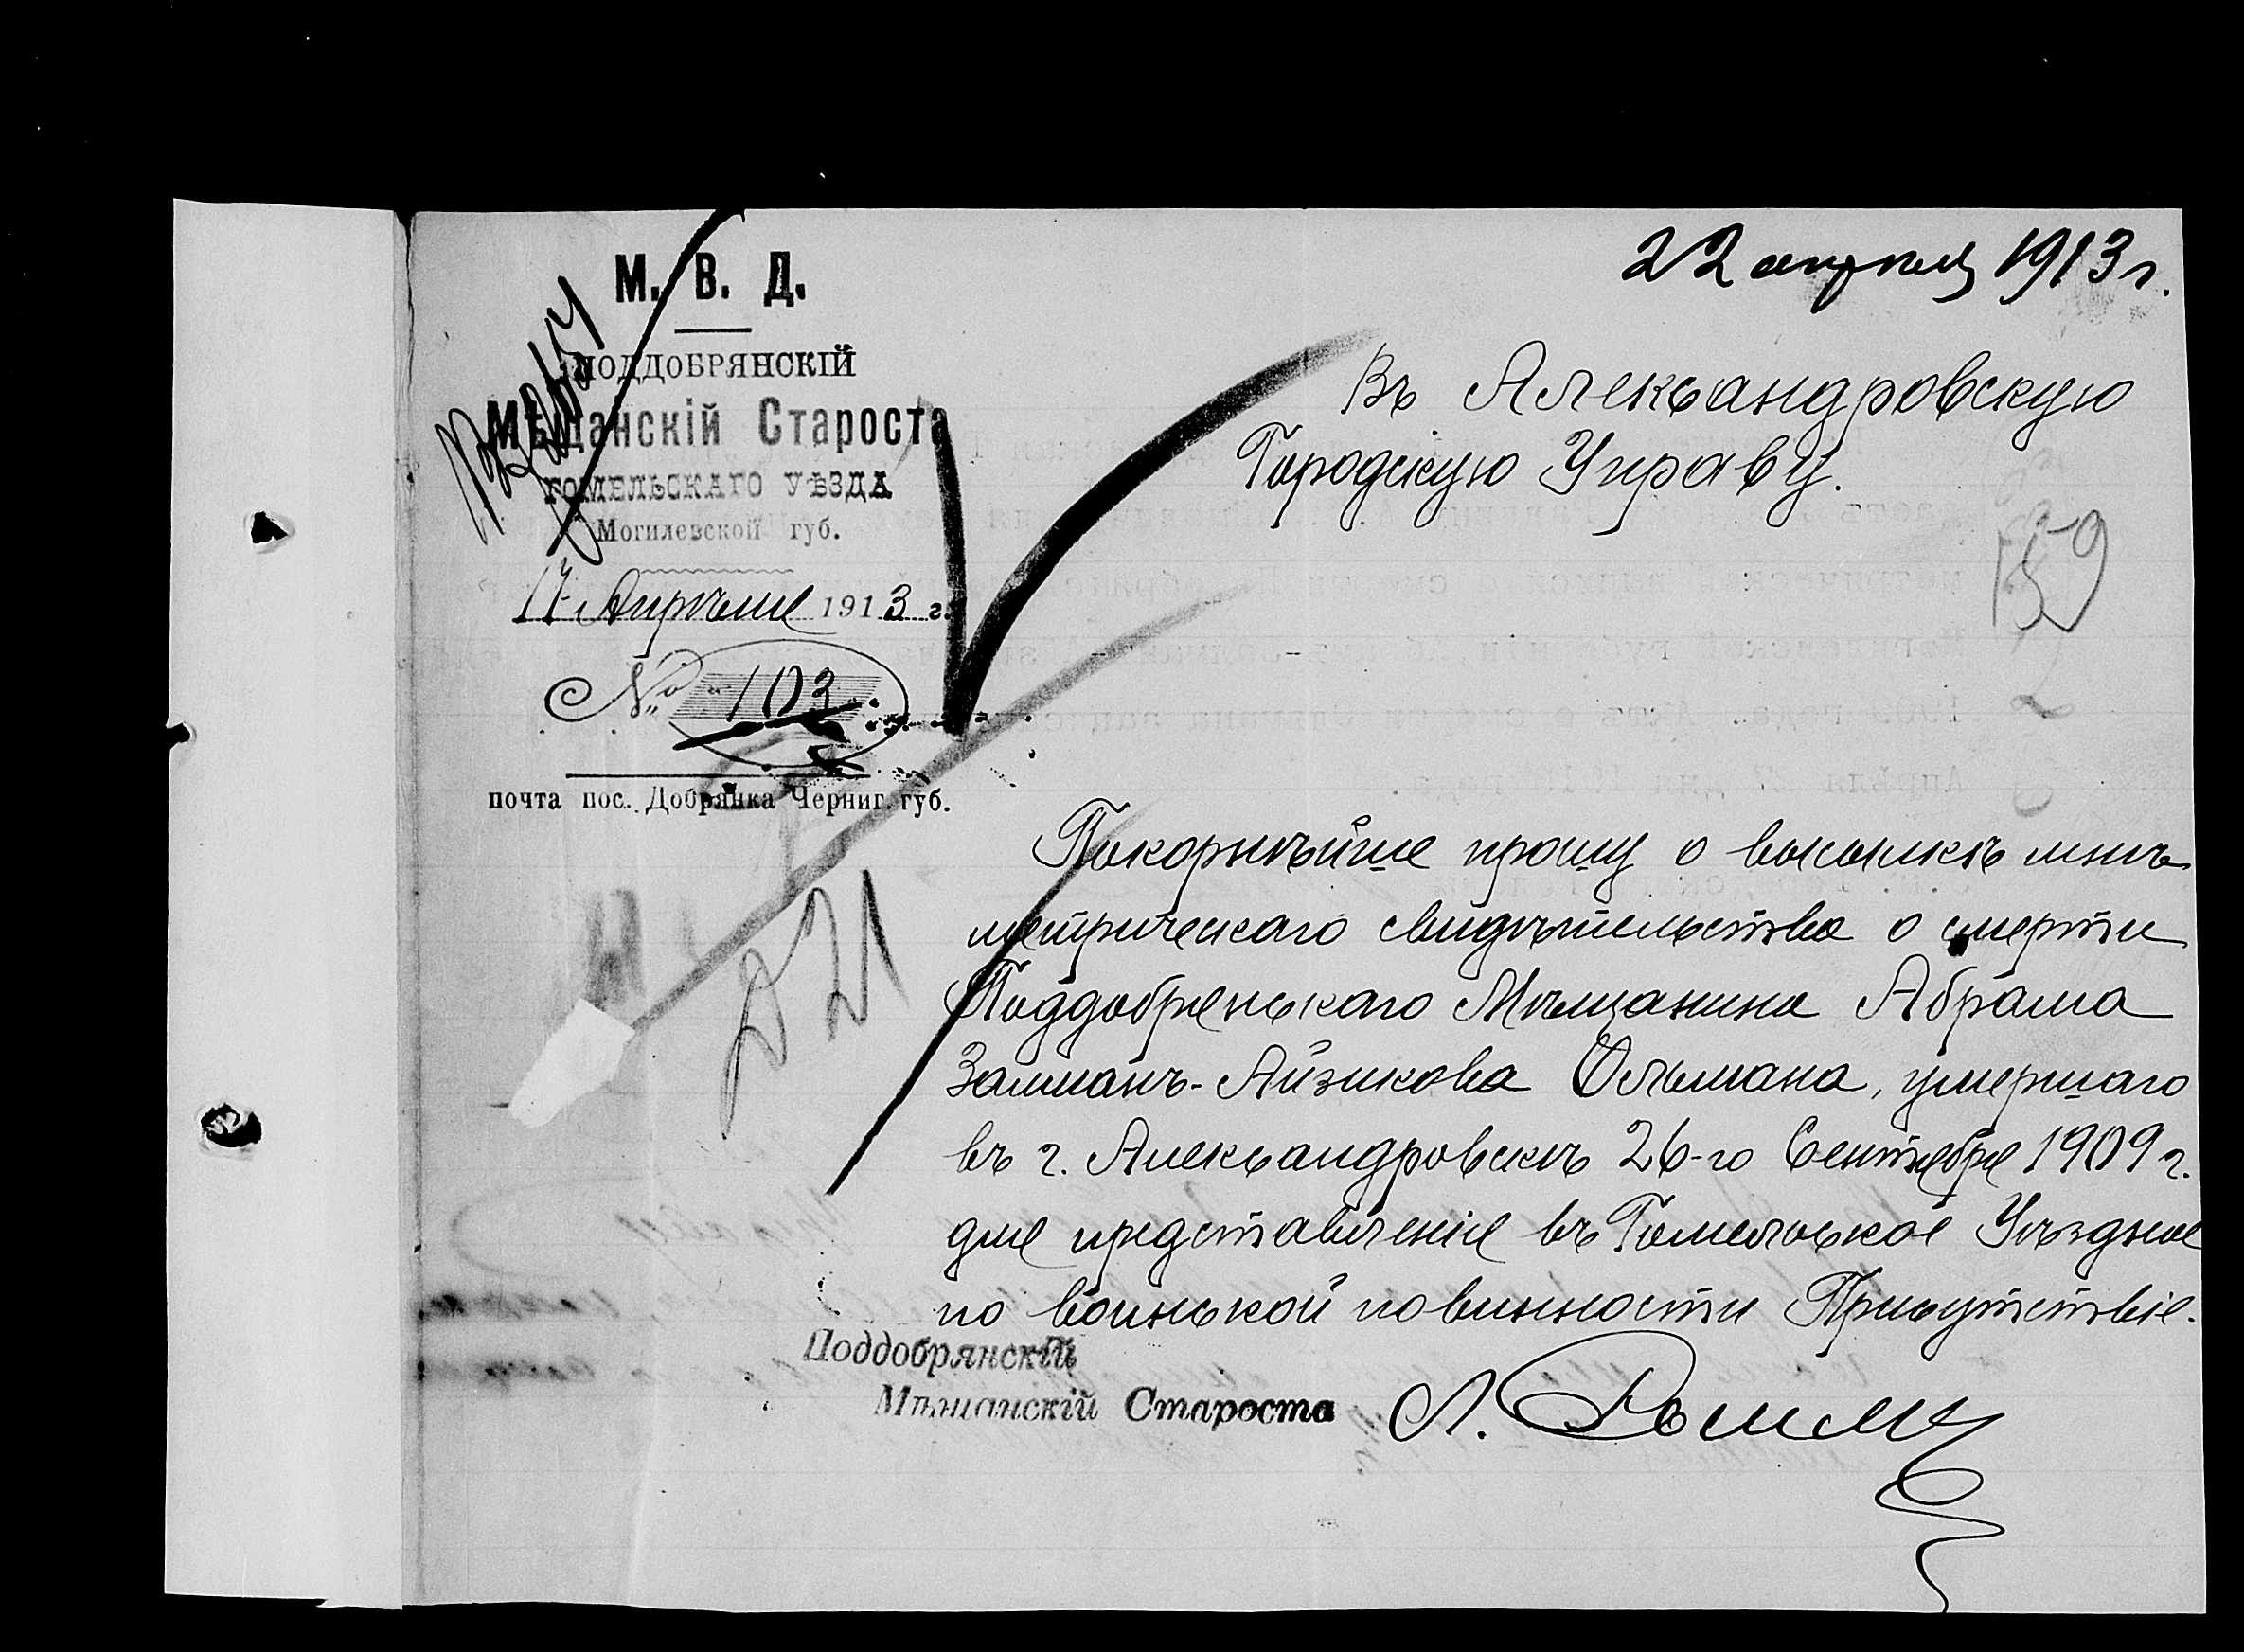 22 апреля 1913 г.
М. В. Д.
ПОДДОБРЯНСКІЙ
Мѣщанскій Староста
ГОМЕЛЬСКАГО УѢЗДА
Могилевской губ.
17 Апрѣля 1913 г.
№ 103
почта пос. Добрянка Черниг. губ.
221
Въ Александровскую
Городскую Управу.
159
Покорнѣйше прошу о высылкѣ мнѣ
метрическаго свидѣтельства о смерти
Поддобрянскаго Мѣщанина Абрама
Залманъ-Айзикова Ольмана, умершаго
въ г. Александровскѣ 26-го Сентября 1909 г.
для представленія въ Гомельское Уѣздное
по воинской повинности Присутствіе.
Поддобрянскій
Мѣщанскій Староста Л.